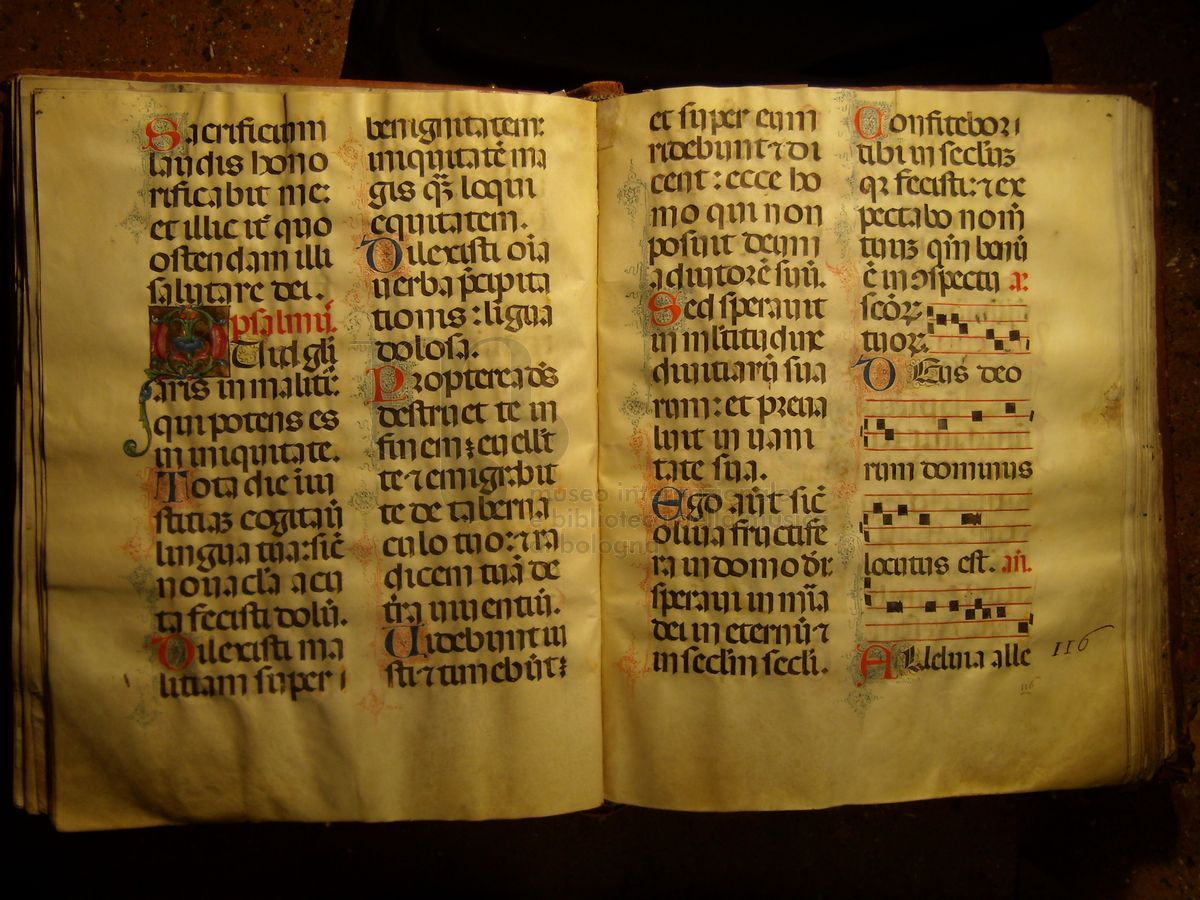 Sacrificium
laudis hono
rificabit me:
et illic it̄ quo
ostendam illi
salutare dei.
psalmꝰ.
Quid gl̄i
aris in malitiā
qui potens es
in iniquitate.
Tota die iniu
stitiaꝫ cogitaū
lingua tua: sic̄
nouacl̄a acu
ta fecisti dolū.
Dilexisti ma
litiam super
benignitatem:
iniquitatē ma
gis qꝫ̄ loqui
equitatem.
Dilexisti oīa
uerba p̄cipita
tionis: ligua
dolosa.
Propterea dš
destruet te in
finem: euell̄t
te ⁊ emigrabit
te de taberna
culo tuo: ⁊ ra
dicem tuā de
tr̄a uiuentiū.
Uidebunt iu
sti ⁊ timebūt:
et super eum
ridebunt ⁊ di
cent: ecce ho
mo qui non
posuit deum
adiutorē suū.
Sed sperauit
in ml̄titudine
diuitiarū sua
rum: et preua
luit in uani
tate sua.
Ego aūt sic̄
oliua fructife
ra in domo dī:
speraui in mīa
dei in eternū ⁊
in seclm̄ secli.
Confitebor
tibi in seclm̄
qꝛ fecisti: ⁊ ex
pectabo nom̄
tuuꝫ qm̄ bonū
ē in ↄspectu
sc̄oꝝ
tuoꝝ.
DEus deo
rum dominus
locutus est. an̄.
Alleluia alle
116
116
museo internazionale
e biblioteca della musica
di bologna